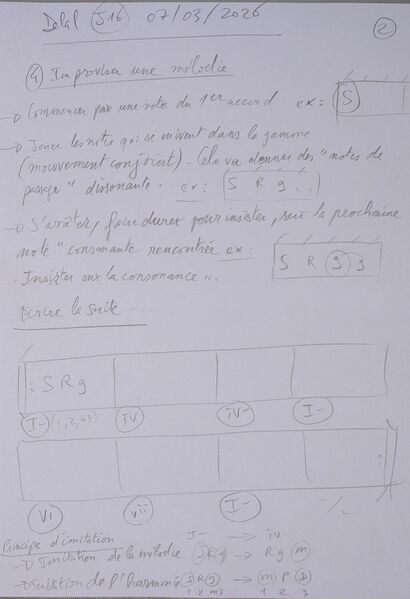 Delal J16 07/03/2026 2
4 Improviser une mélodie
→ Commencer par une note du 1er accord ex: S
→ Jouer les notes qui se suivent dans la gamme
(mouvement conjoint). Cela va donner des "notes de
passage" dissonante. ex: S R g ..
→ S'arrêter, faire durer pour insister, sur la prochaine
note "consonante rencontrée ex.
S R g g
Insister sur la consonance"..
Ecrire la suite ...
: S R g
I- (1, 2, m3) iv iv- I-
:
VI vii I- -/.
Principe d'imitation I- → iv
→ Imitation de la mélodie S R g → R g m
→ Imitation de l'harmonie S R g → m P
1 2 m3 1 2 3